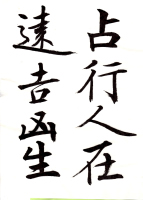 占行人在
遠吉凶生